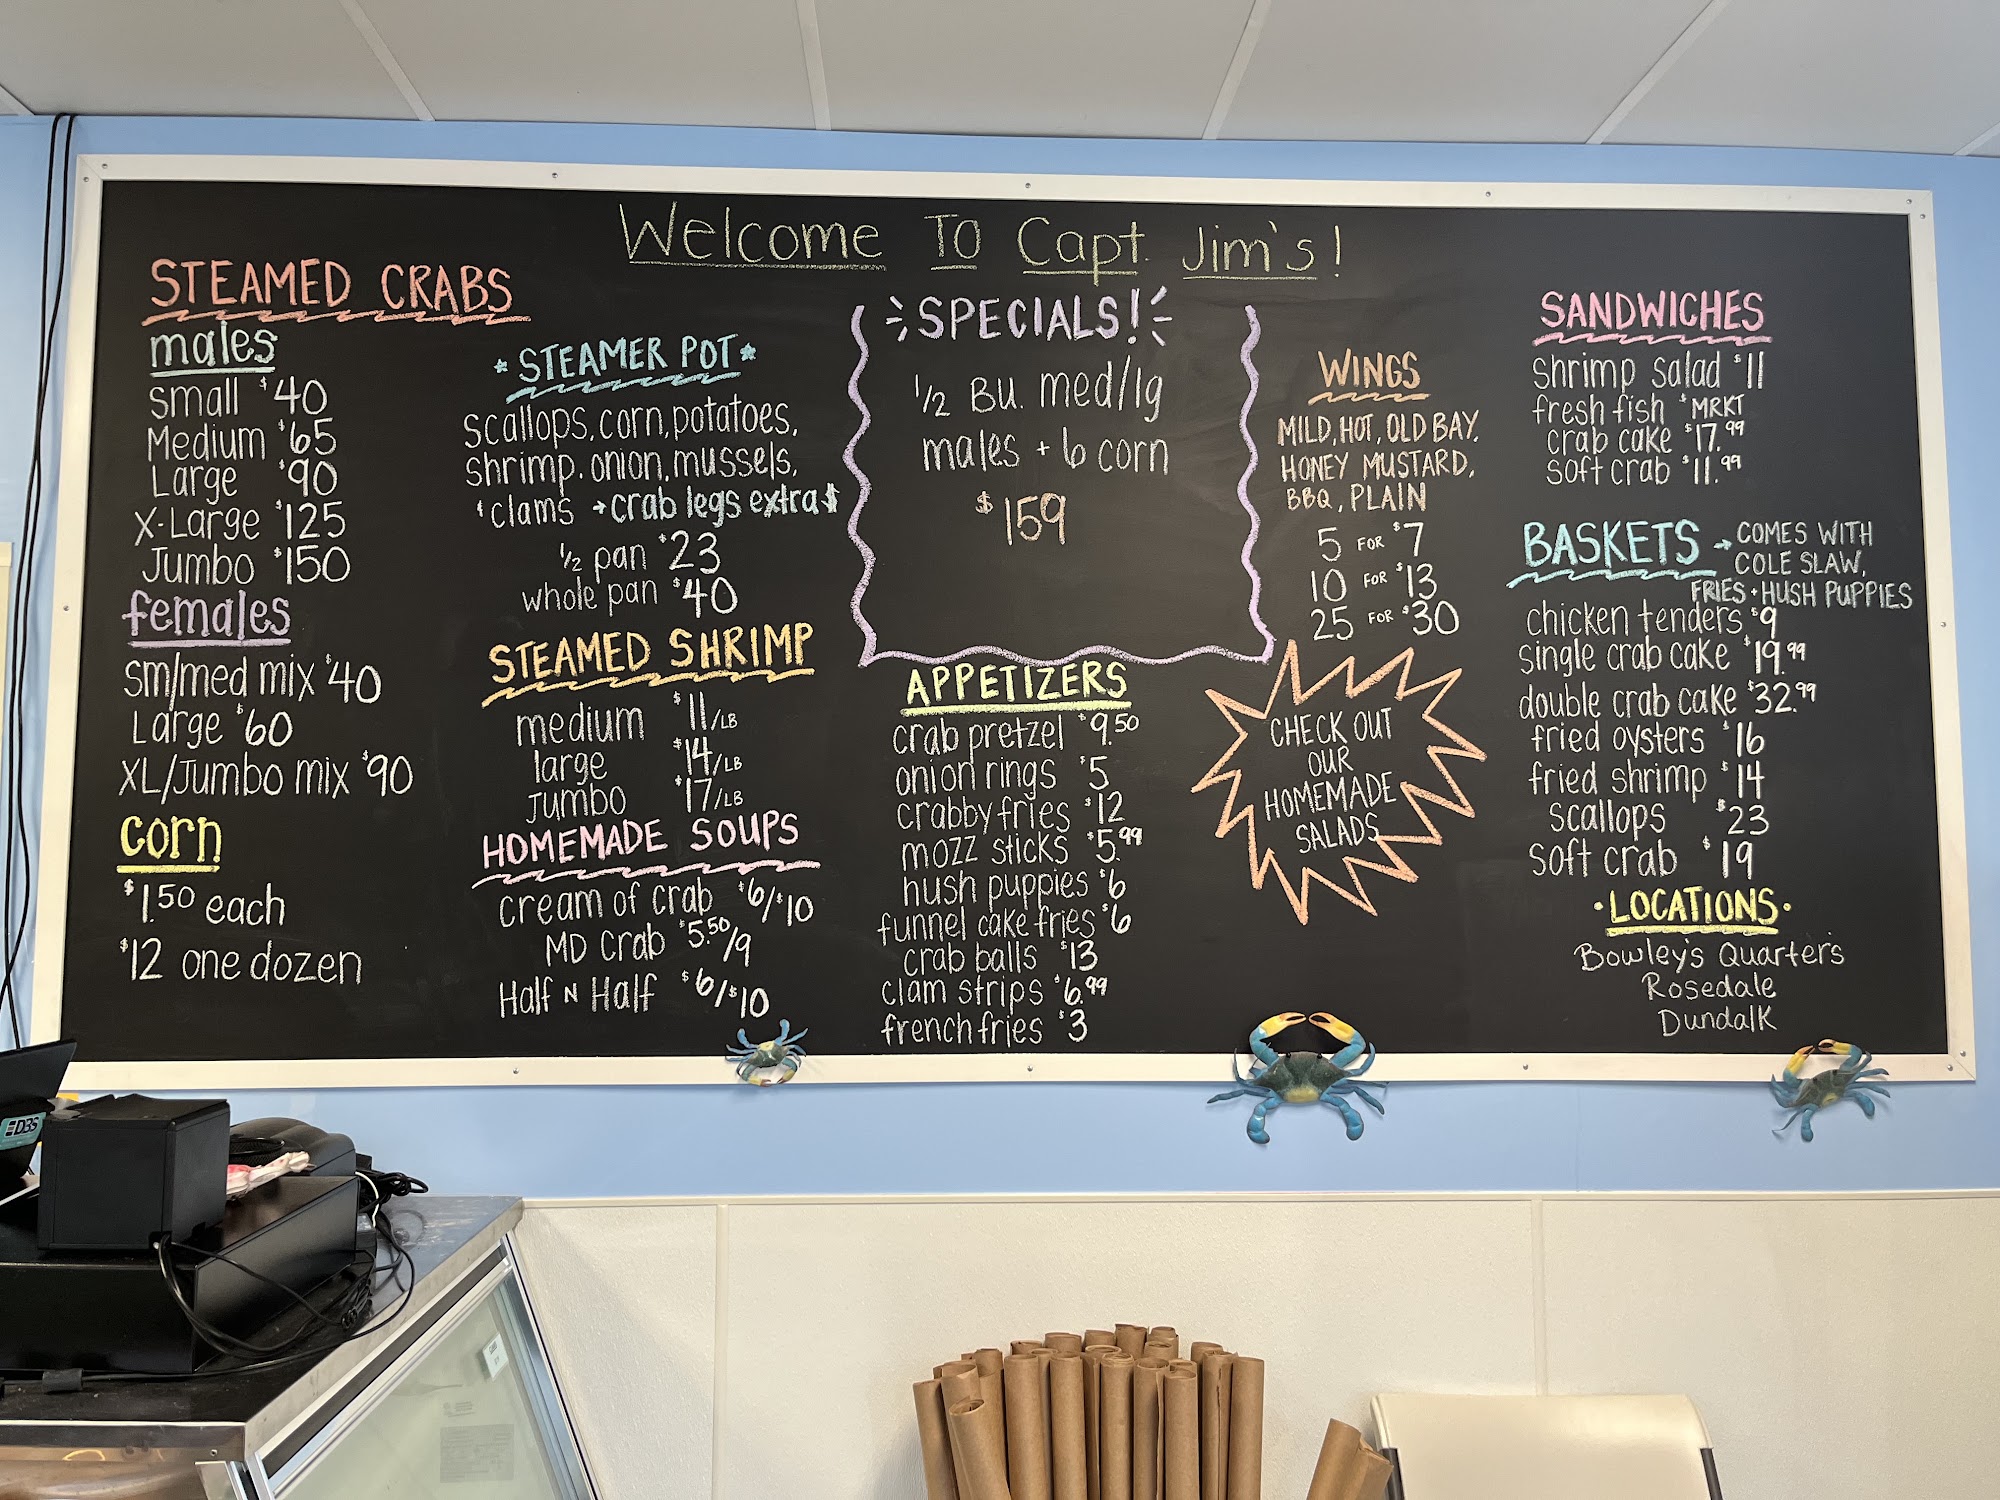 Welcome To Capt. Jim's!
STEAMED CRABS
males
small $40
Medium $65
Large $90
X-Large $125
Jumbo $150
females
sm/med mix $40
Large $60
XL/Jumbo mix $90
corn
$1.50 each
$12 one dozen
*STEAMER POT*
scallops, corn, potatoes,
shrimp, onion, mussels,
clams → crab legs extra $
1/2 pan $23
whole pan $40
STEAMED SHRIMP
medium $11/LB
large $14/LB
Jumbo $17/LB
HOMEMADE SOUPS
cream of crab $6/$10
MD crab $5.50/9
Half N Half $6/$10
SPECIALS!
1/2 BU. med/lg
males + 6 corn
$159
APPETIZERS
crab pretzel $9.50
onion rings $5
crabby fries $12
mozz sticks $5.99
hush puppies $6
funnel cake fries $6
crab balls $13
clam strips $6.99
french fries $3
WINGS
MILD, HOT, OLD BAY,
HONEY MUSTARD,
BBQ, PLAIN
5 FOR $7
10 FOR $13
25 FOR $30
CHECK OUT
OUR
HOMEMADE
SALADS
SANDWICHES
shrimp salad $11
fresh fish $MRKT
crab cake $17.99
soft crab $11.99
BASKETS → COMES WITH
COLE SLAW,
FRIES + HUSH PUPPIES
chicken tenders $9
single crab cake $19.99
double crab cake $32.99
fried oysters $16
fried shrimp $14
scallops $23
soft crab $19
·LOCATIONS·
Bowley's Quarter's
Rosedale
Dundalk
DBS